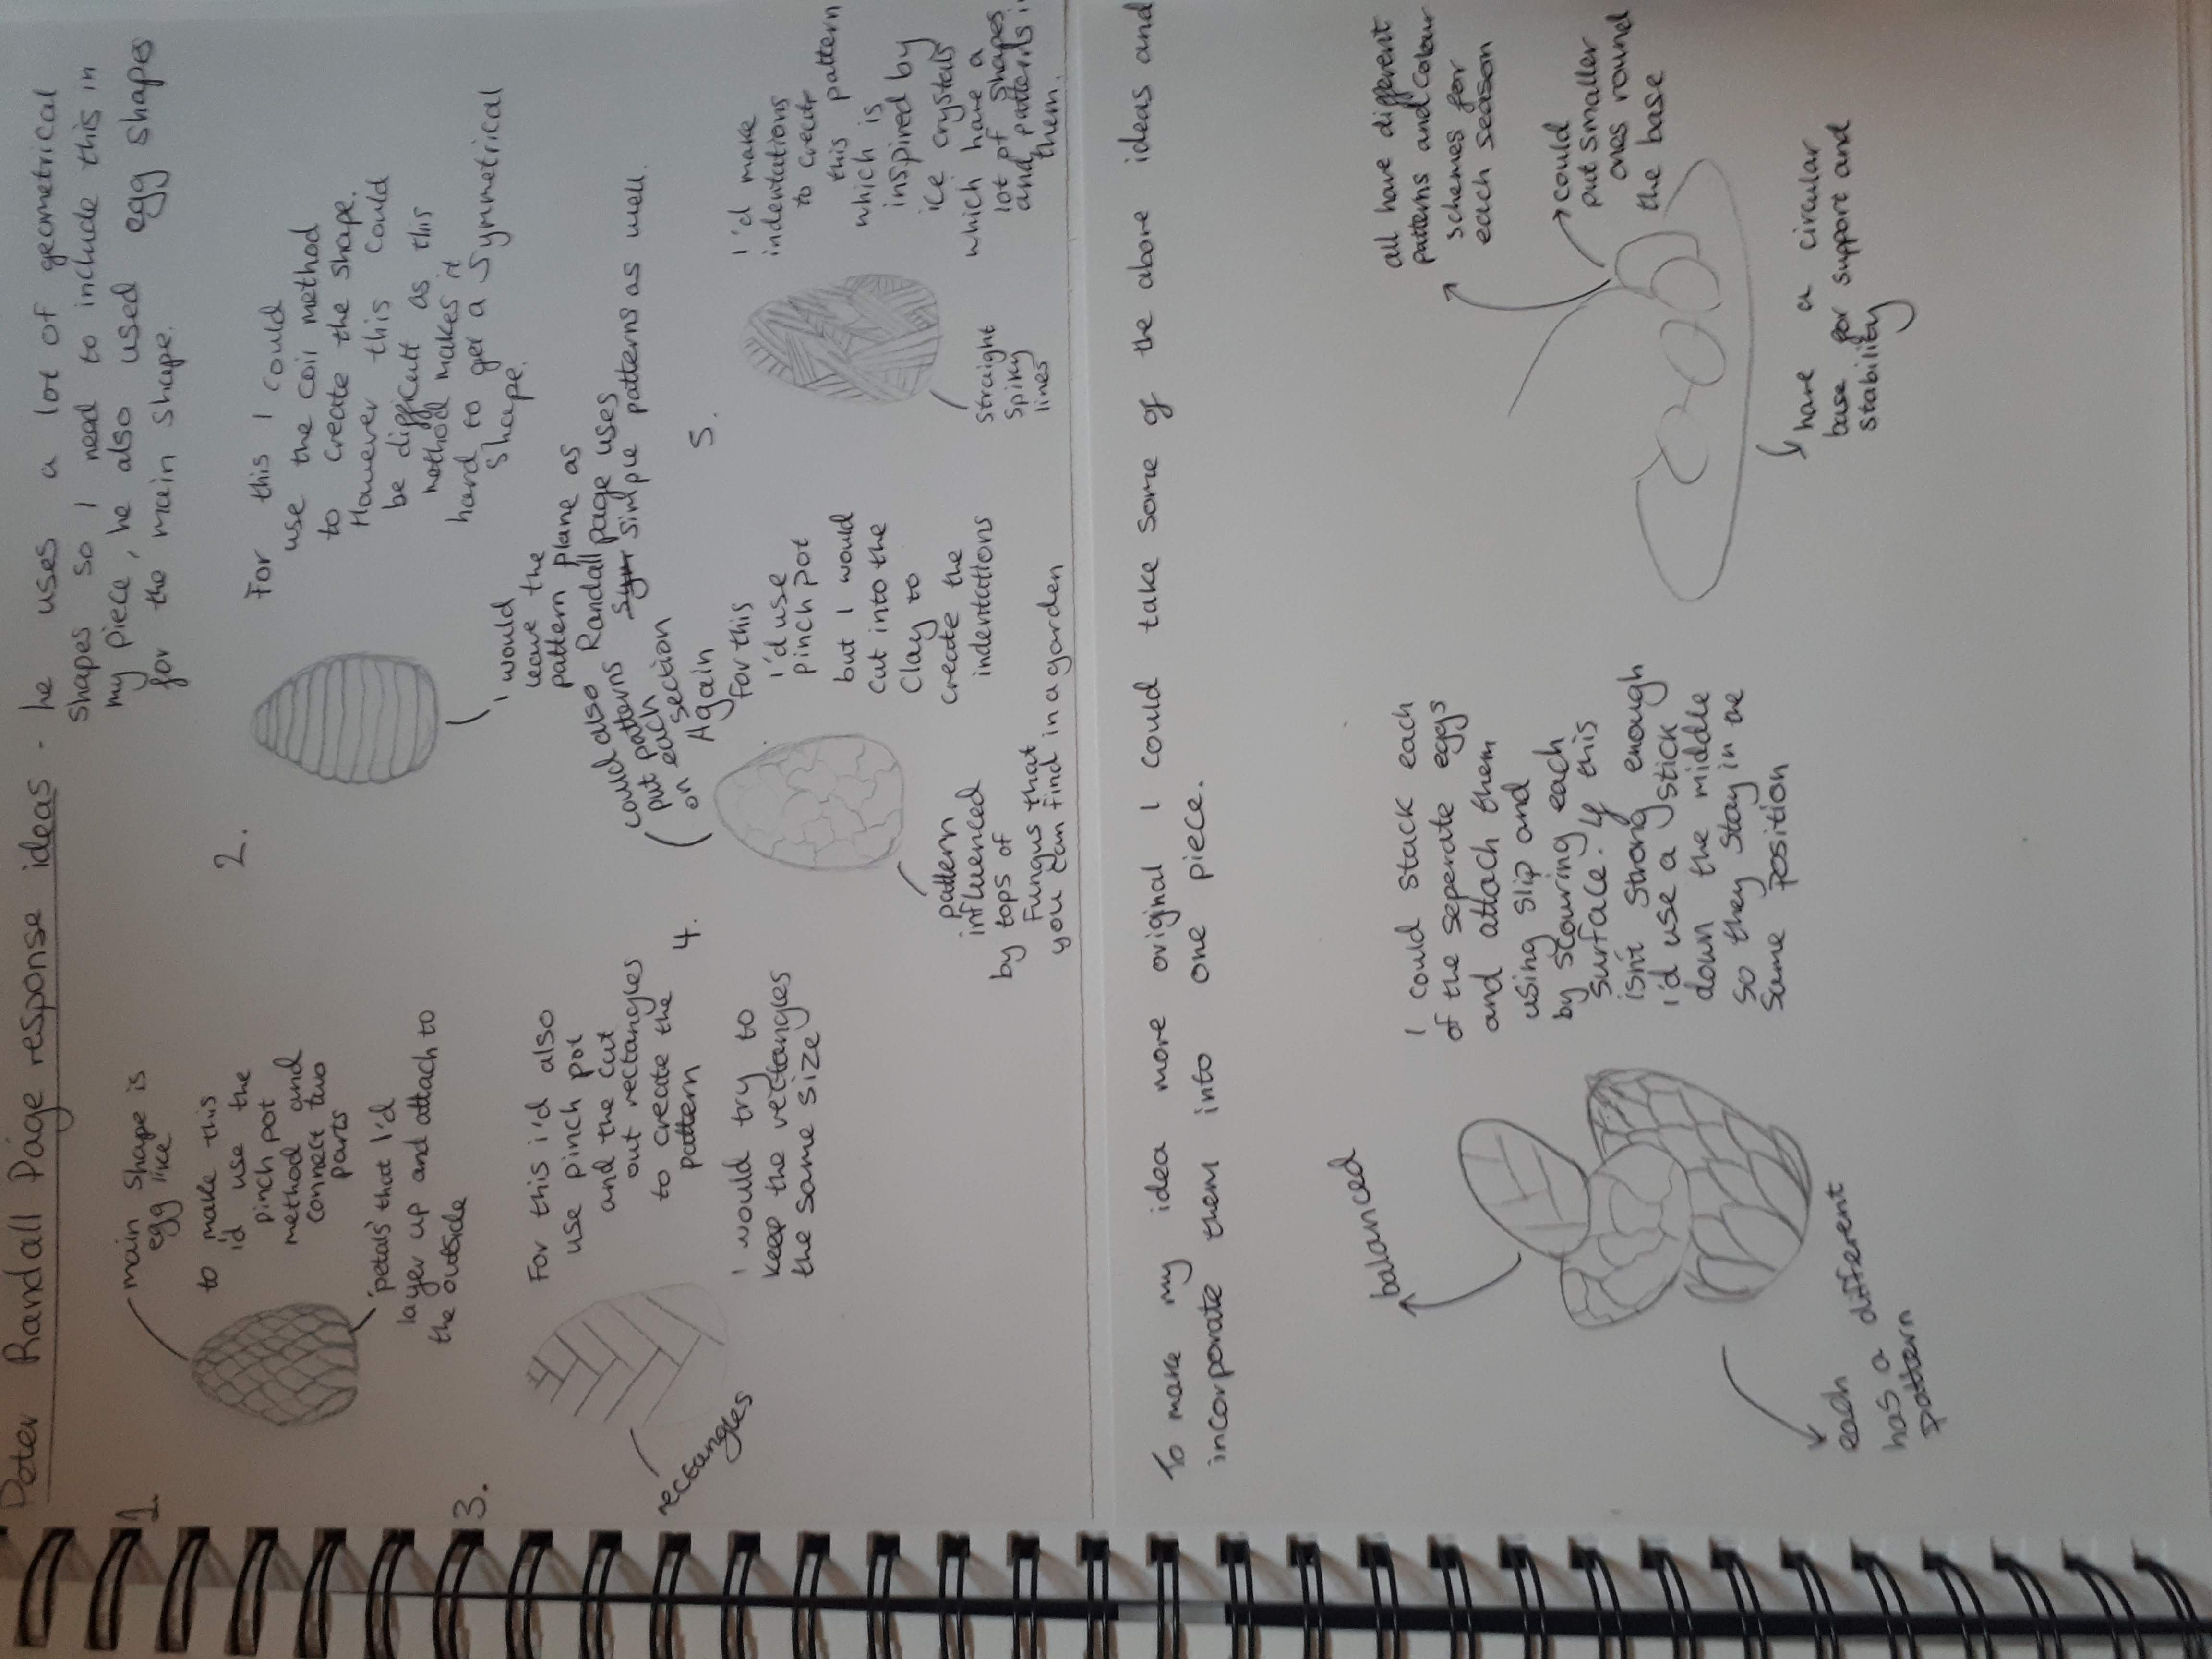 Peter Randall Page response ideas - he uses a lot of geometrical
shapes so I need to include this in
my piece, he also used egg shapes
for the main shape.
1.
main shape is
egg like
to make this
i'd use the
pinch pot
method and
connect two
parts
'petals' that I'd
layer up and attach to
the outside
2.
For this I could
use the coil method
to create the shape.
However this could
be difficult as this
method makes it
hard to get a symmetrical
shape.
I would
leave the
pattern plane as
Randall page uses
simple patterns as well.
could also
put patterns
on each
section
3.
For this i'd also
use pinch pot
and the cut
out rectangles
to create the
pattern
I would try to
keep the rectangles
the same size
rectangles
4.
Again
for this
i'd use
pinch pot
but I would
cut into the
clay to
create the
indentations
pattern
influenced
by tops of
fungus that
you can find in a garden
5.
I'd make
indentations
to create
this pattern
which is
inspired by
ice crystals
which have a
lot of shapes
and patterns in
them.
straight
spiky
lines
To make my idea more original I could take some of the above ideas and
incorporate them into one piece.
balanced
each different
has a
pattern
I could stack each
of the seperate eggs
and attach them
using slip and
by scouring each
surface. If this
isn't strong enough
i'd use a stick
down the middle
so they stay in the
same position
all have different
patterns and colour
schemes for
each season
could
put smaller
ones round
the base
have a circular
base for support and
stability